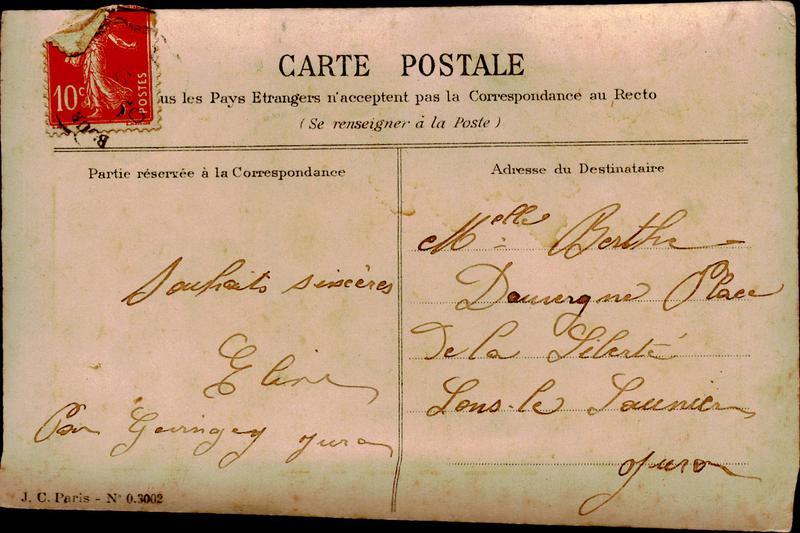 10c
POSTES
CARTE POSTALE
us les Pays Etrangers n'acceptent pas la Correspondance au Recto
(Se renseigner à la Poste)
Partie réservée à la Correspondance
Souhaits sincères
Eline
Par Gevingey Jura
Adresse du Destinataire
Melle Berthe
Dauvergne Place
de la Liberté
Lons-le Saunier
Jura
J. C. Paris - N° 0.3002